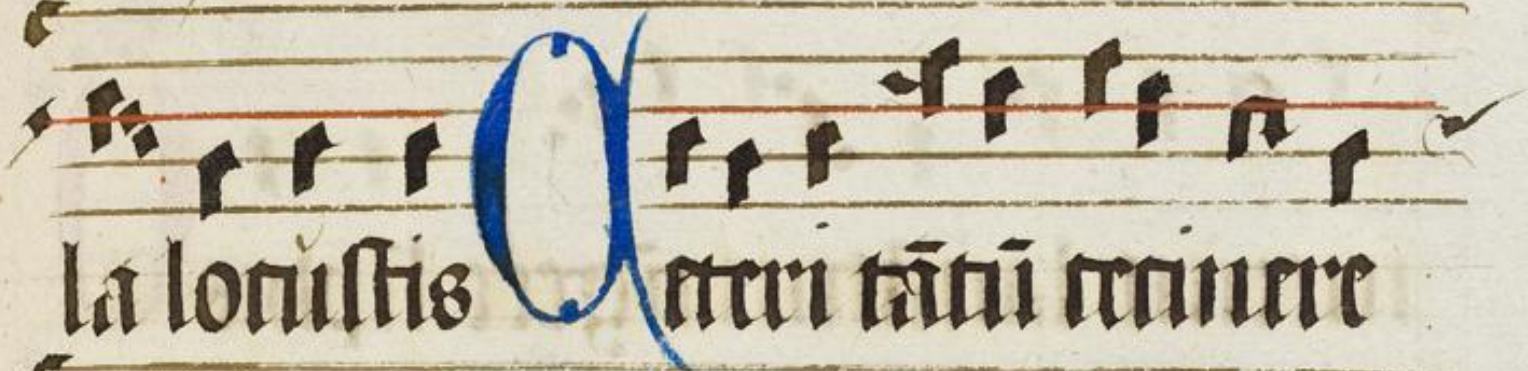 la locustis Ceteri tātū cecinere